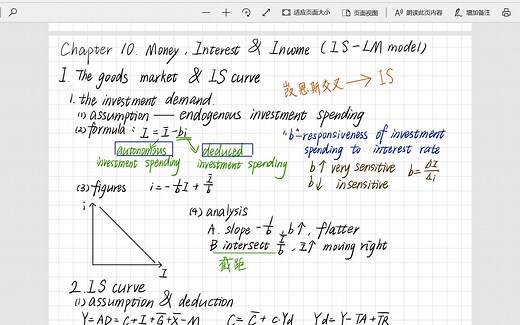 适应页面大小 页面视图 A 朗读此页内容 增加备注
Chapter 10. Money, Interest & Income (IS-LM model)
I. The goods market & IS curve
凯恩斯交叉 → IS
1. the investment demand.
(1) assumption — endogenous investment spending
(2) formula: I = Ī - bi
autonomous investment spending
deduced investment spending
"b"-responsiveness of investment spending to interest rate
b↑ very sensitive
b↓ insensitive
b = ΔI/Δi
(3) figures i = -1/b I + Ī/b
i
I
(4) analysis
A. slope -1/b, b↑, flatter
B intersect Ī/b, Ī↑ moving right
截距
2. IS curve
(1) assumption & deduction
Y=AD=C+I+G̅+X̅-M C=C̅+c·Yd Yd=Y-TA+T̅R̅